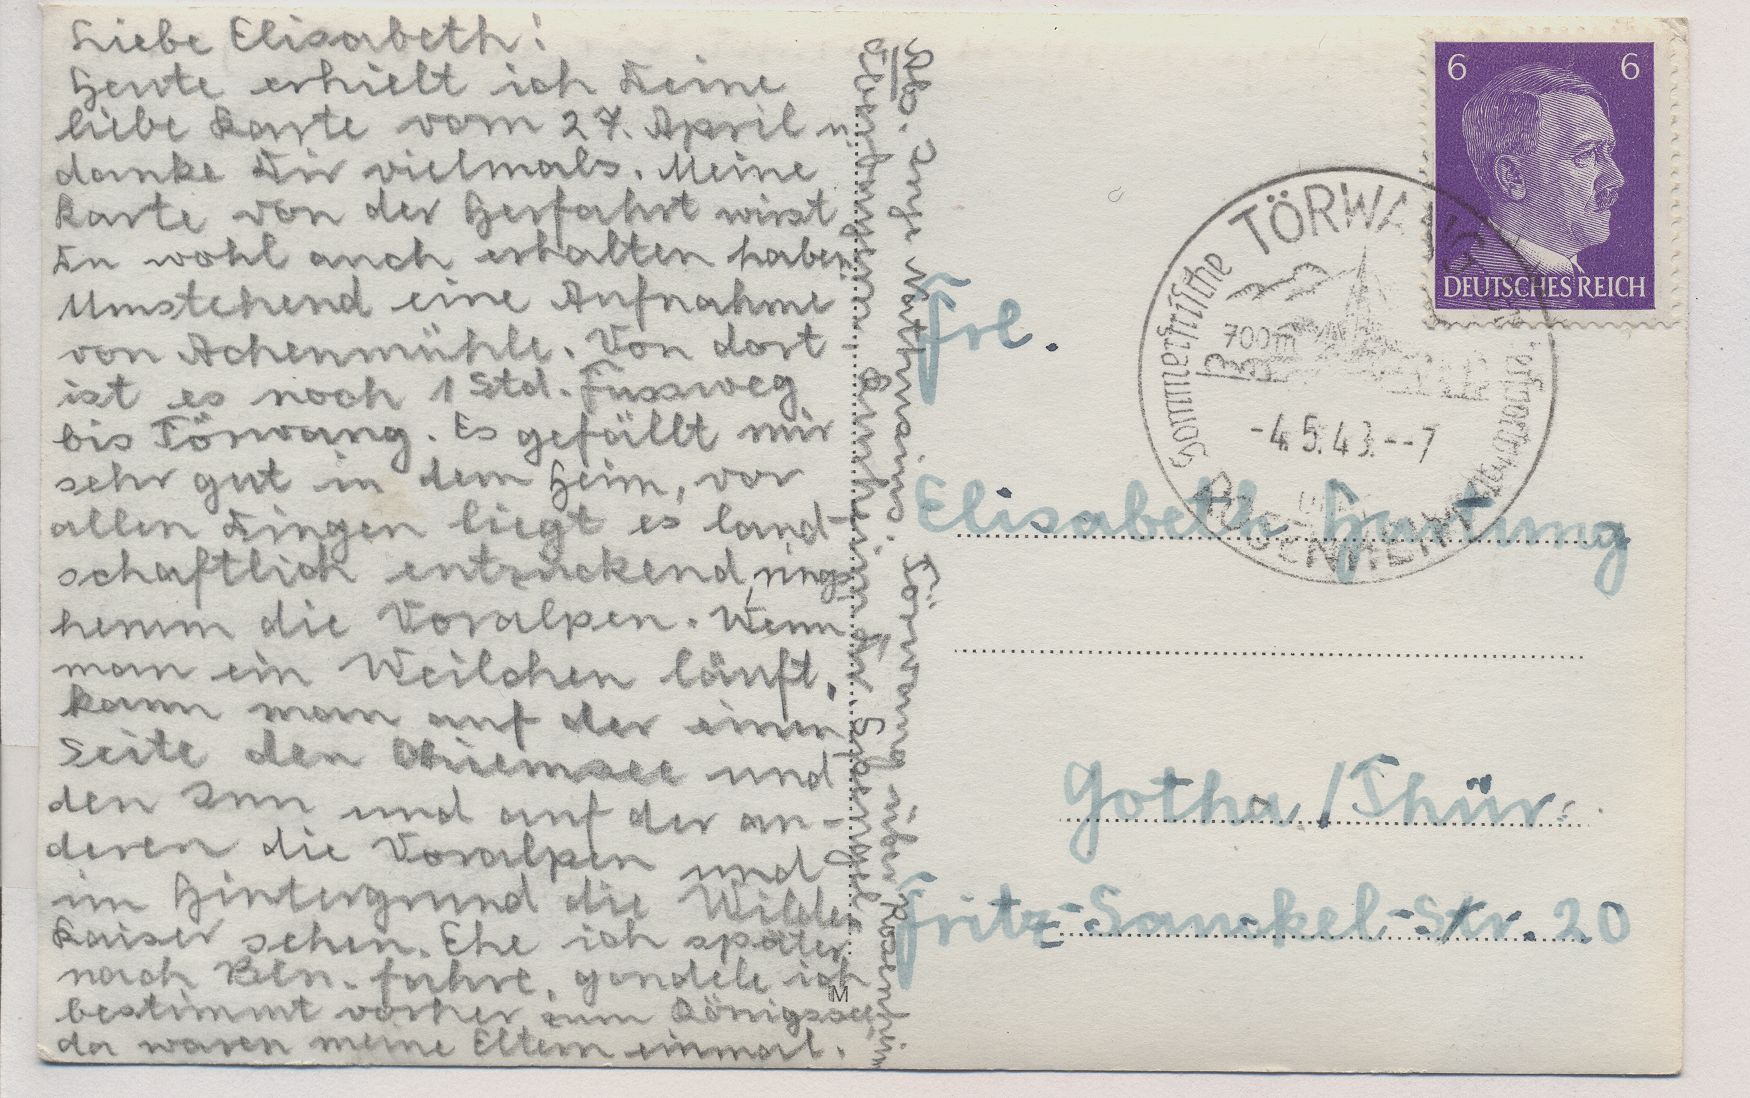 Liebe Elisabeth!
Heute erhielt ich Deine
liebe Karte vom 27. April u.
danke Dir vielmals. Meine
Karte von der Herfahrt wirst
Du wohl auch erhalten haben.
Umstehend eine Aufnahme
von Achenmühle. Von dort
ist es noch 1 Std. Fussweg
bis Törwang. Es gefällt mir
sehr gut in dem Heim, vor
allen Dingen liegt es land-
schaftlich entzückend, rings
herum die Voralpen. Wenn
man ein Weilchen läuft,
kann man auf der einen
Seite den Chiemsee und
den Inn und auf der an-
deren die Voralpen und
im Hintergrund die Wilden
Kaiser sehen. Ehe ich später
nach Bln. fahre, gondele ich
bestimmt vorher zum Königssee,
da waren meine Eltern einmal.
Abs. Törwang über Rosenheim
M
6 6
DEUTSCHES REICH
TÖRWANG
Sommerfrische
700m
-4.5.43.--7
ROSENHEIM
Frl.
Elisabeth Hartung
Gotha/Thür.
Fritz-Sauckel-Str. 20